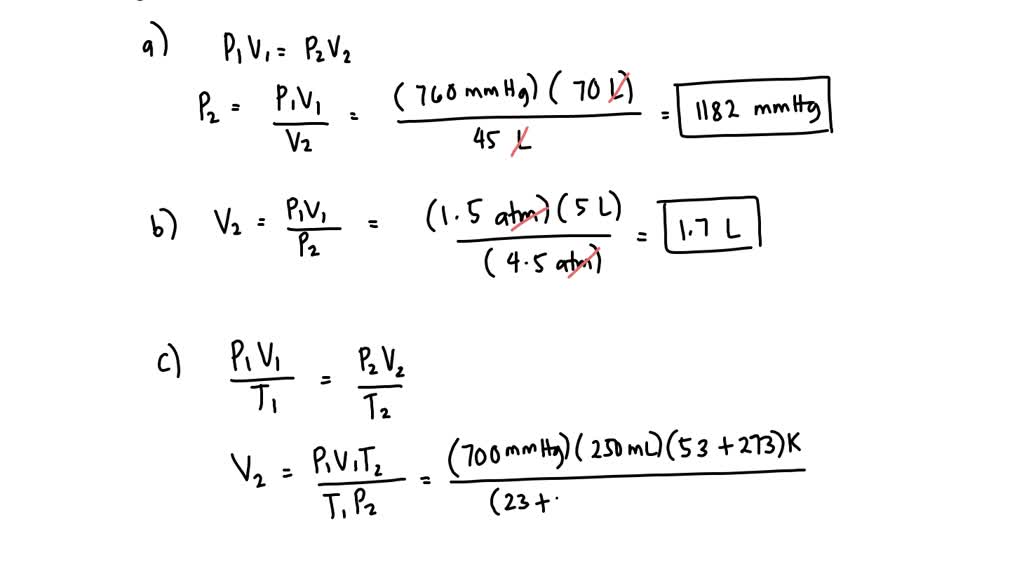 a) P₁V₁ = P₂V₂
P₂ = P₁V₁ / V₂ = (760 mmHg)(70 L) / 45 L = 1182 mmHg
b) V₂ = P₁V₁ / P₂ = (1.5 atm)(5 L) / (4.5 atm) = 1.7 L
c) P₁V₁ / T₁ = P₂V₂ / T₂
V₂ = P₁V₁T₂ / T₁P₂ = (700 mmHg)(250 mL)(53 + 273)K / (23 + .